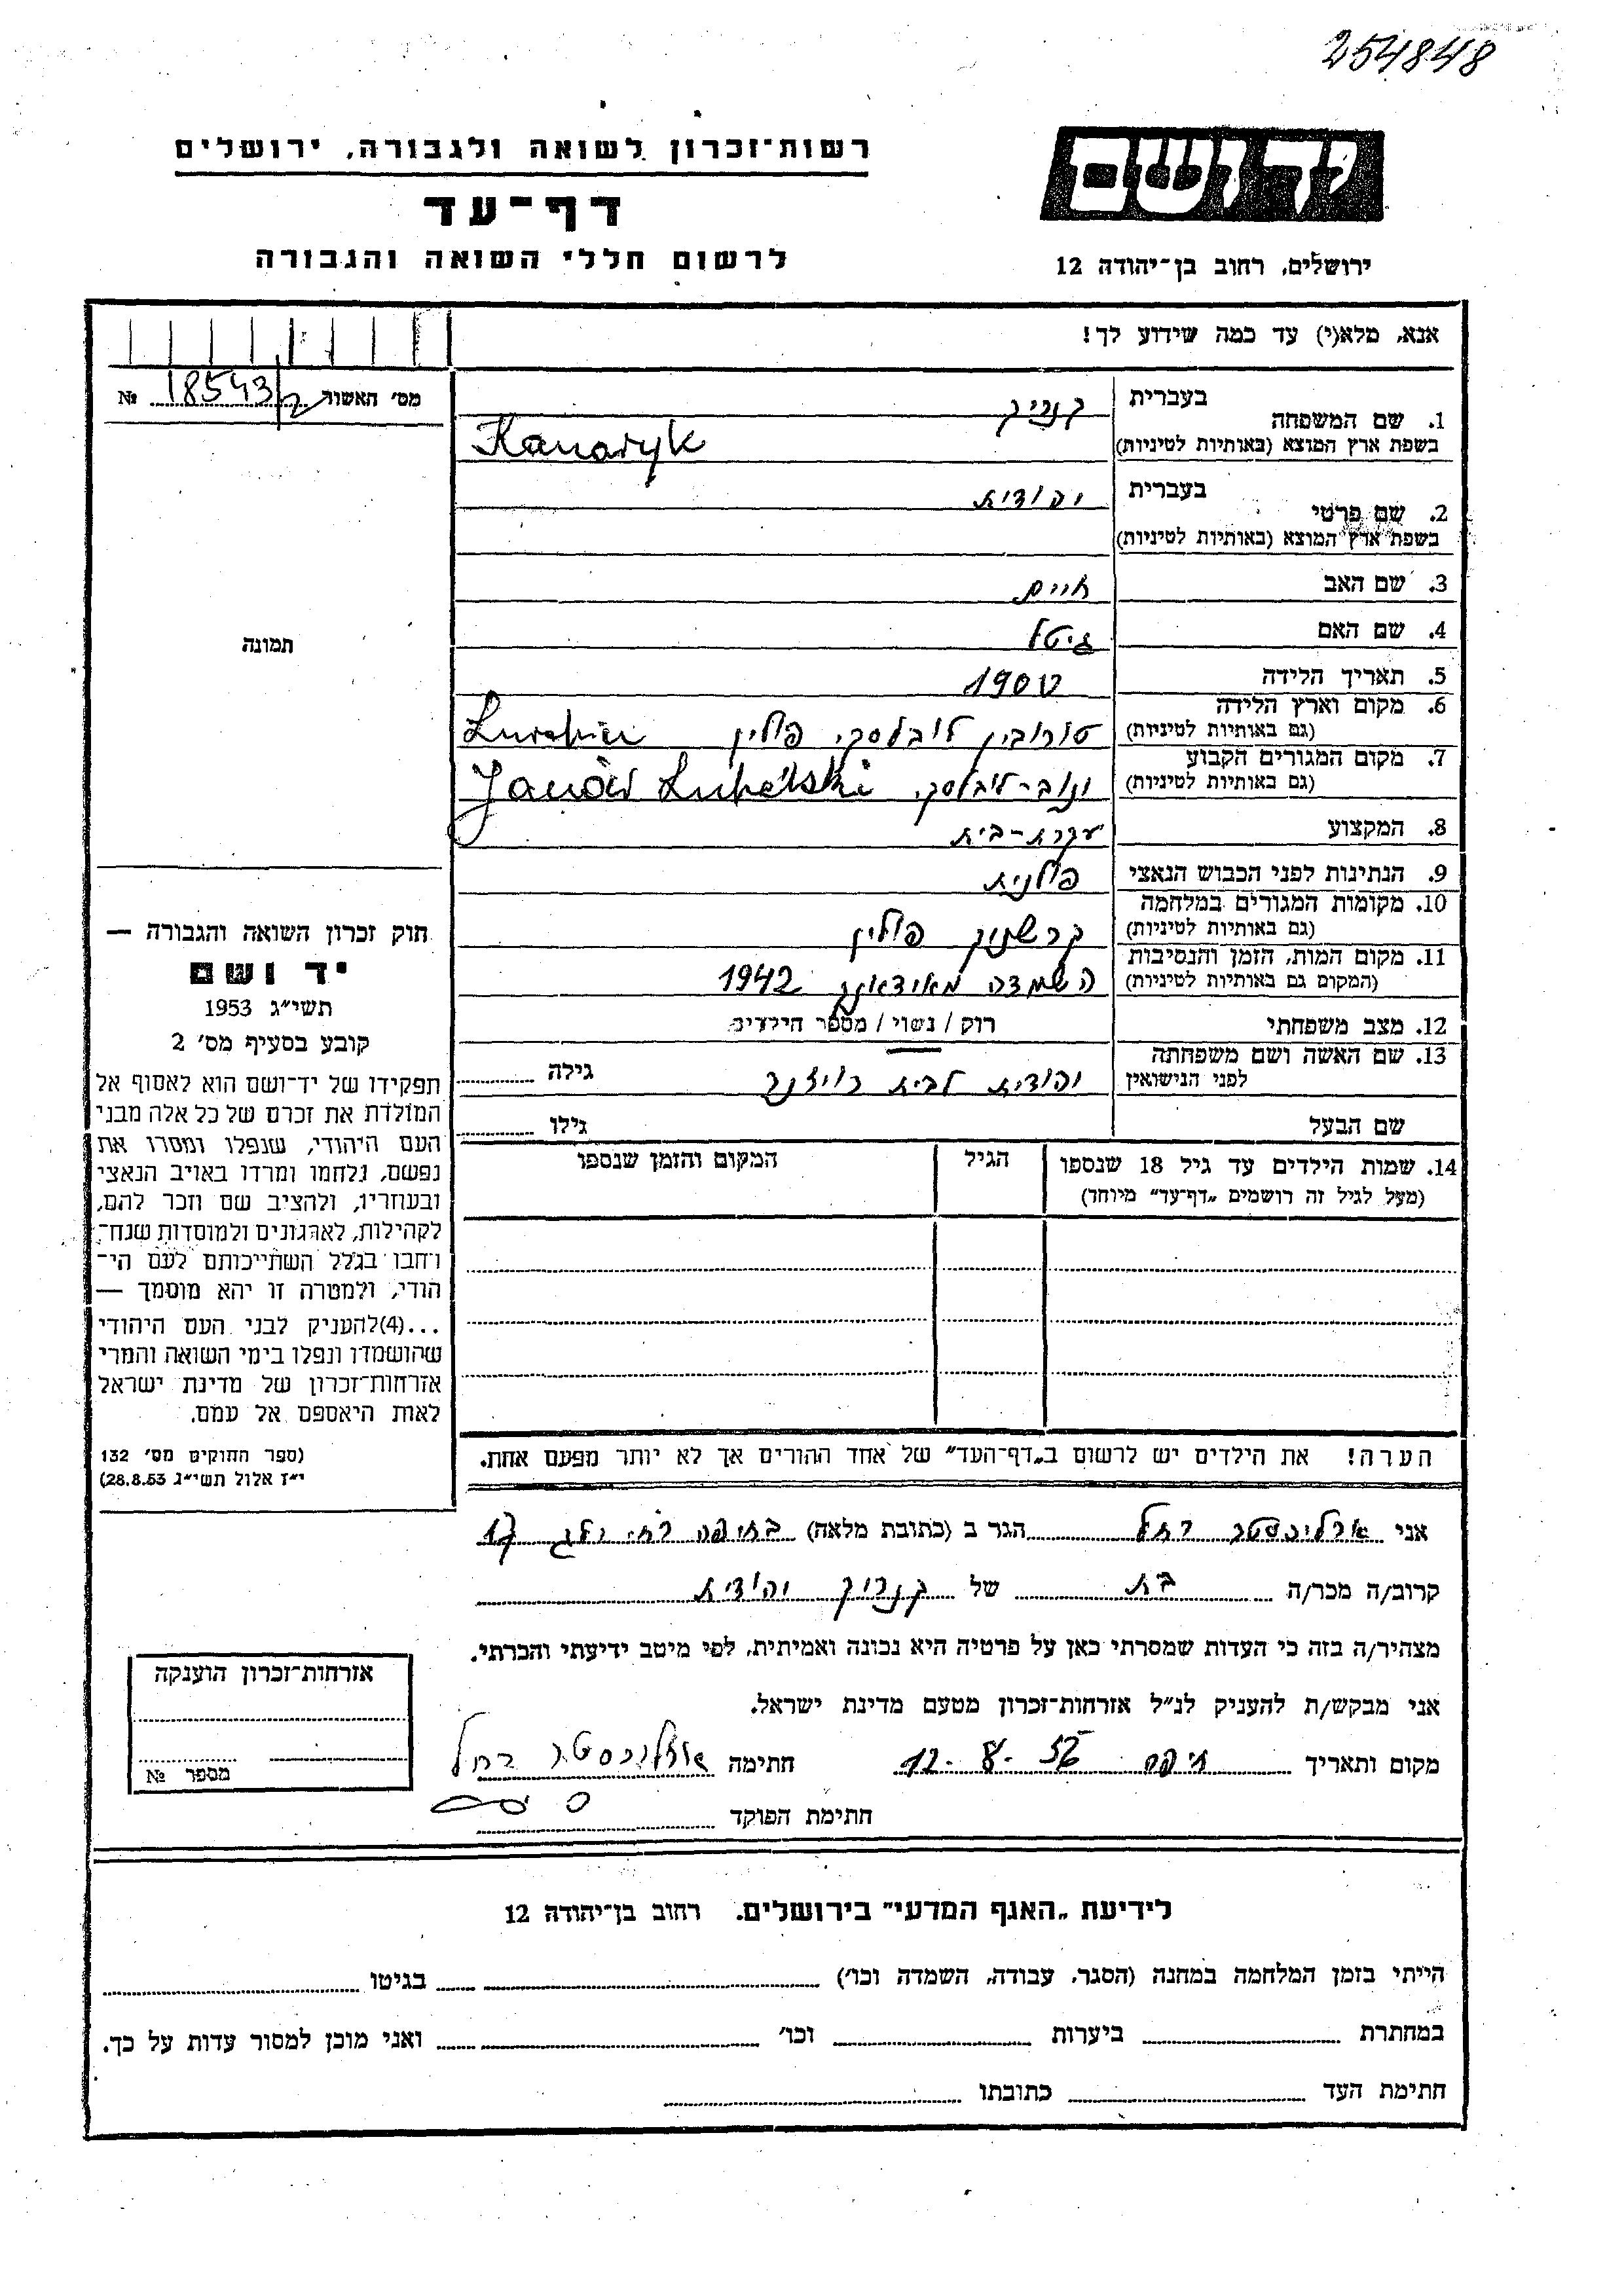 254848
יד ושם
רשות־זכרון לשואה ולגבורה, ירושלים
דף־עד
לרשום חללי השואה והגבורה
ירושלים, רחוב בן־יהודה 12
אנא, מלא(י) עד כמה שידוע לך!
מס׳ האשור 18543/2 №
1. שם המשפחה בעברית
בשפת ארץ המוצא (באותיות לטיניות) Kanaryk
2. שם פרטי בעברית יהודית
בשפת ארץ המוצא (באותיות לטיניות)
3. שם האב חיים
4. שם האם גיטל
5. תאריך הלידה 1900
6. מקום וארץ הלידה
(גם באותיות לטיניות) טורובין לובלסקי פולין
7. מקום המגורים הקבוע
(גם באותיות לטיניות) Janów Lubelski
8. המקצוע עקרת-בית
9. הנתינות לפני הכבוש הנאצי פולנית
10. מקומות המגורים במלחמה
(גם באותיות לטיניות) קרשניק פולין
11. מקום המות, הזמן והנסיבות
(המקום גם באותיות לטיניות) השמדה מאידאנק 1942
12. מצב משפחתי רוק / נשוי / מספר הילדים
13. שם האשה ושם משפחתה
לפני הנישואין יהודית לבית גילה
שם הבעל גילו
14. שמות הילדים עד גיל 18 שנספו הגיל המקום והזמן שנספו
(מעל לגיל זה רושמים „דף־עד” מיוחד)
הערה! את הילדים יש לרשום ב„דף־העד” של אחד ההורים אך לא יותר מפעם אחת.
תמונה
חוק זכרון השואה והגבורה —
יד ושם
תשי״ג 1953
קובע בסעיף מס׳ 2
תפקידו של יד־ושם הוא לאסוף אל
המולדת את זכרם של כל אלה מבני
העם היהודי, שנפלו ומסרו את
נפשם, נלחמו ומרדו באויב הנאצי
ובעוזריו, ולהציב שם וזכר להם,
לקהילות, לארגונים ולמוסדות שנח־
רבו בגלל השתייכותם לעם הי־
הודי, ולמטרה זו יהא מוסמך —
...(4)להעניק לבני העם היהודי
שהושמדו ונפלו בימי השואה והמרי
אזרחות־זכרון של מדינת ישראל
לאות היאספם אל עמם.
(ספר החוקים מס׳ 132
י״ז אלול תשי״ג 28.8.53)
אני רחל הגר ב (כתובת מלאה) בחיפה רח׳ 17
קרוב/ה מכר/ה בת של קנריק יהודית
מצהיר/ה בזה כי העדות שמסרתי כאן על פרטיה היא נכונה ואמיתית, לפי מיטב ידיעתי והכרתי.
אני מבקש/ת להעניק לנ״ל אזרחות־זכרון מטעם מדינת ישראל.
מקום ותאריך חיפה 12-8-56 חתימה רחל
חתימת הפוקד
אזרחות־זכרון הוענקה
מספר №
לידיעת „האגף המדעי” בירושלים. רחוב בן־יהודה 12
הייתי בזמן המלחמה במחנה (הסגר, עבודה, השמדה וכו׳) בגיטו
במחתרת ביערות וכו׳ ואני מוכן למסור עדות על כך.
חתימת העד כתובתו